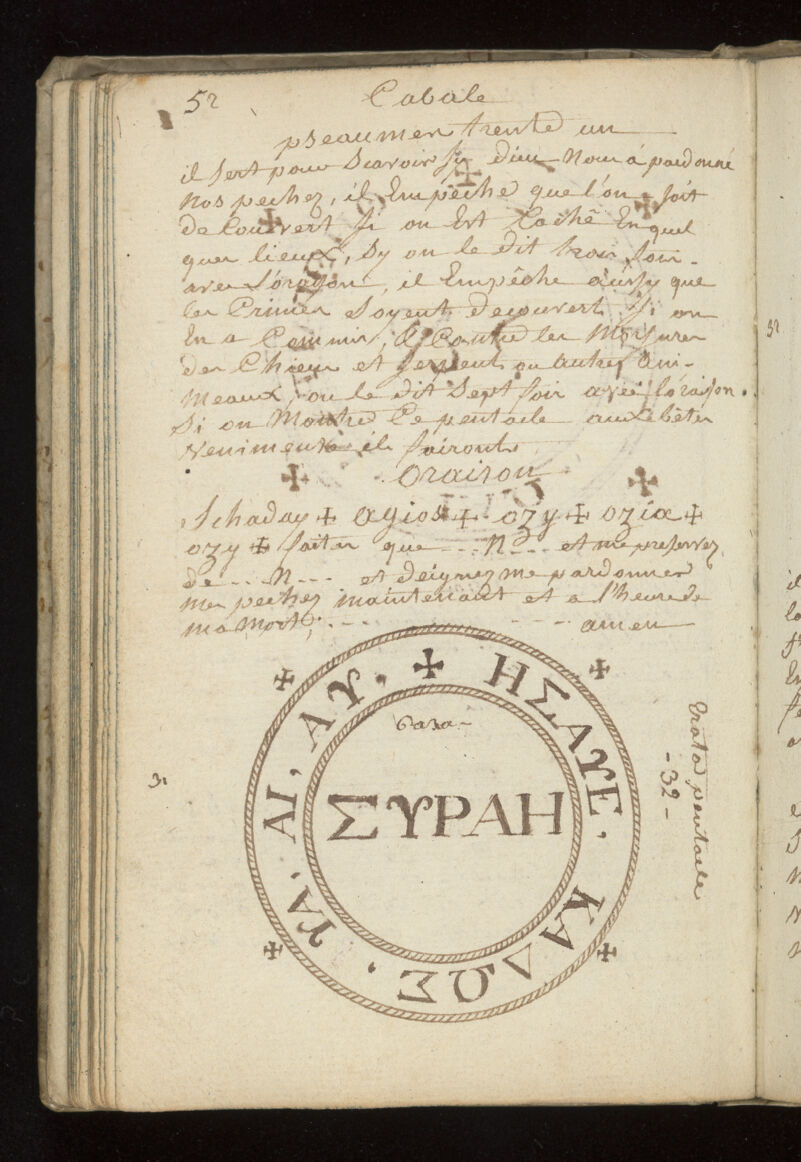 52 Cabale
pseaumes trente un
il sert pour Scavoir sy dieu Nous á pardonné
Nos pechez, il Empéche que l'on soit
decouvert si on Est Caché En quel
ques lieux, sy on le dit trois fois
avec L'oraison, il Empêche aussy que
les Crimes soyent decouvert si on
En a Commis, & Contre les Morsures
des Chiens et serpents ou autres Ani-
meaux, on le dit Sept fois avec l'oraison.
Si on Montre Ce pentacle aux bêtes
Venimente il fuiront
✠ Oraison ✠
Schaday ✠ agios ✠ ozy ✠ ozia ✠
ozy ✠ faites que --- N --- et me preservez
de --- N --- et deignez me pardonner
mes pechez maintenant et a l'heure de
ma Mort; --- --- amen
✠ ΗΣΑΥΕ. ΚΑΔΩΣ, ΥΑ, ΑΙ, ΑΥ.
ΣΥΡΑΗ
31
Erata pentacle
- 32 -